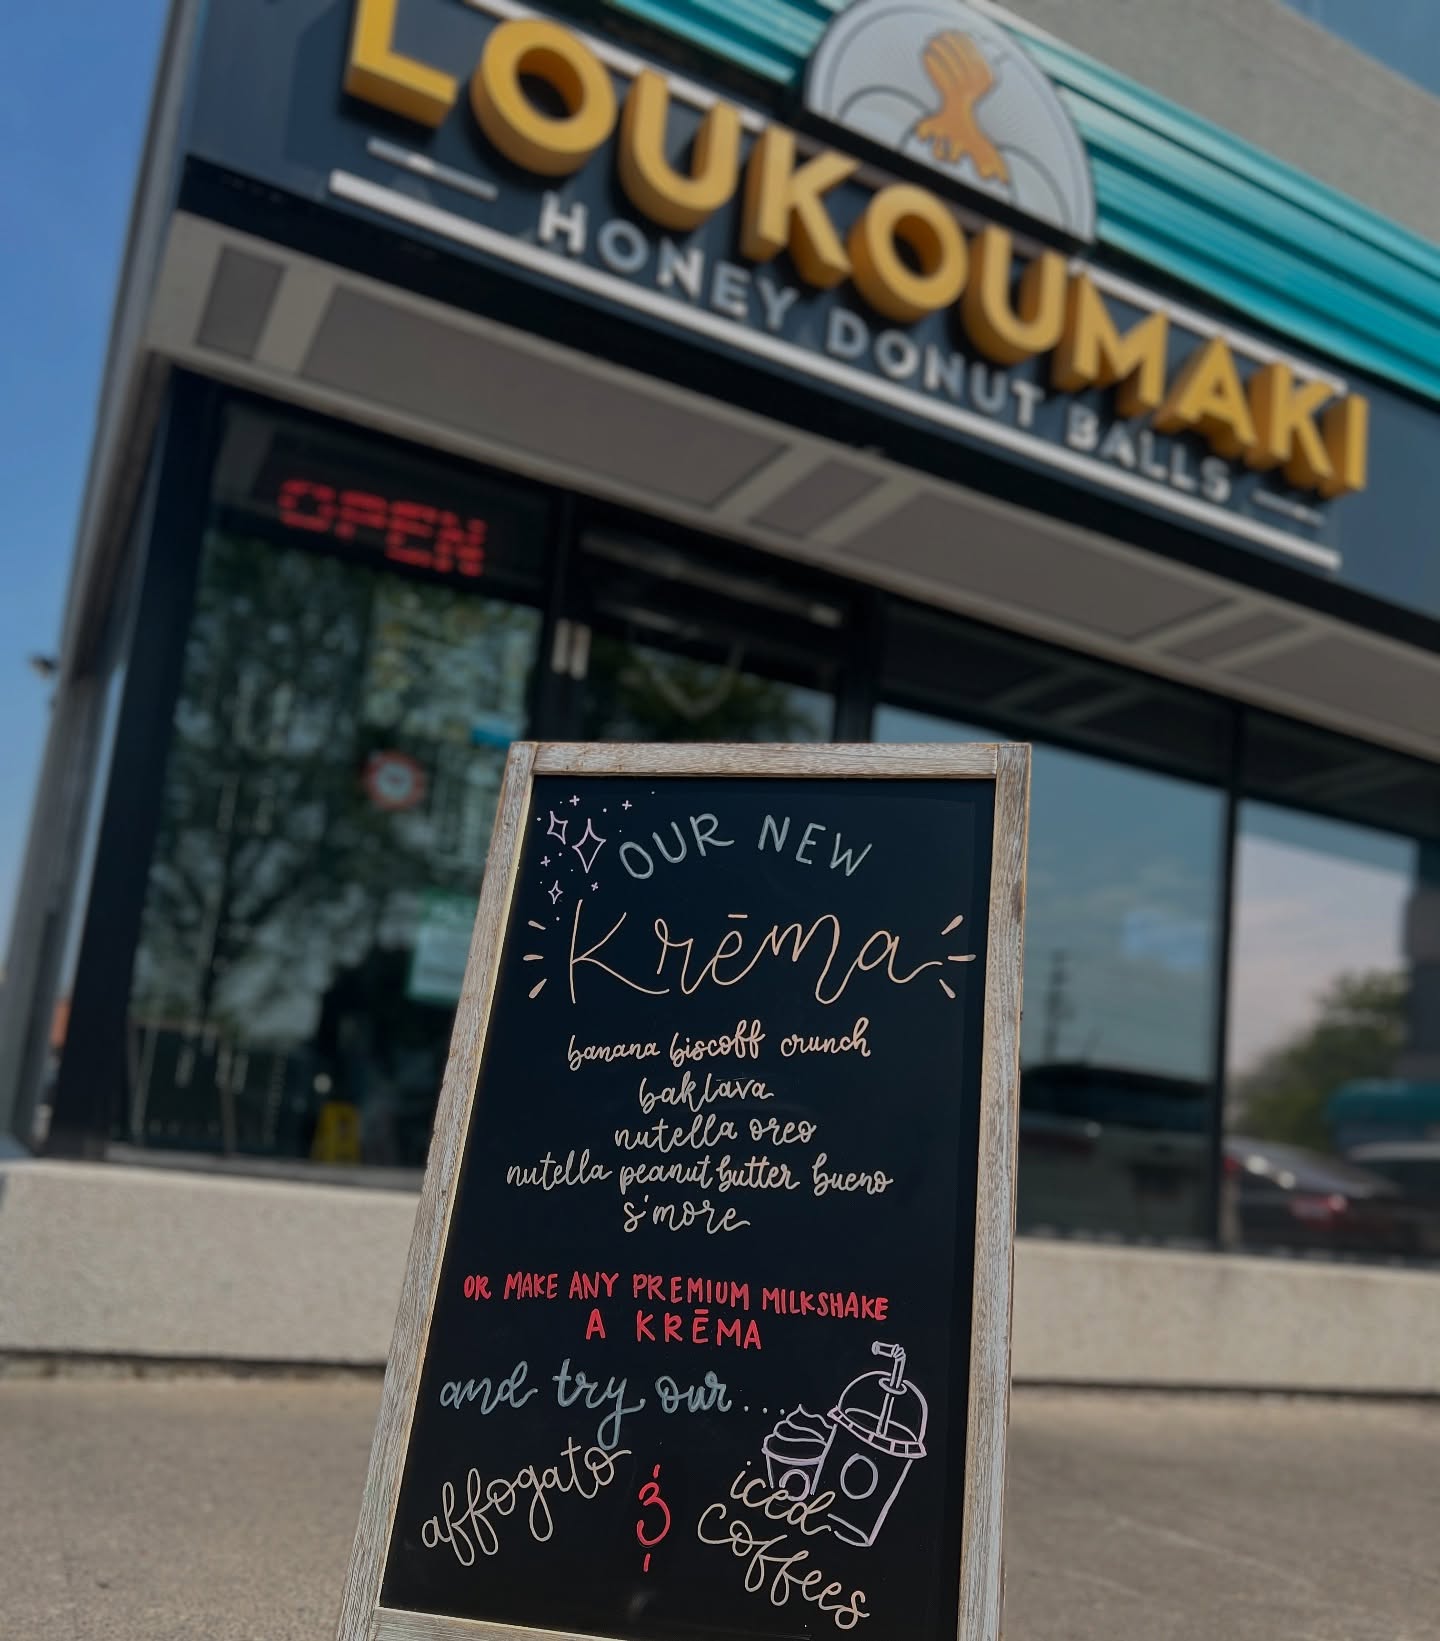 LOUKOUMAKI
HONEY DONUT BALLS
OPEN
OUR NEW
Krēma
banana biscoff crunch
baklava
nutella oreo
nutella peanut butter bueno
s'more
OR MAKE ANY PREMIUM MILKSHAKE
A KRĒMA
and try our...
affogato &
iced
coffees